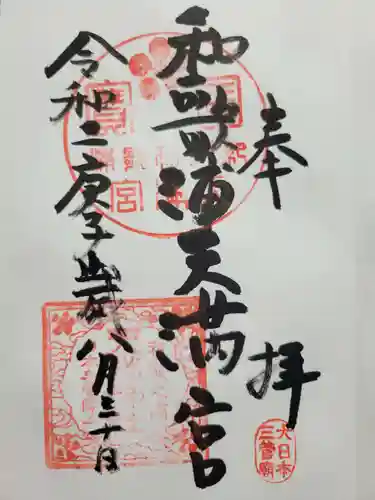 奉拝
和歌浦天満宮
令和二庚子歳八月三十日
大日本
三菅廟